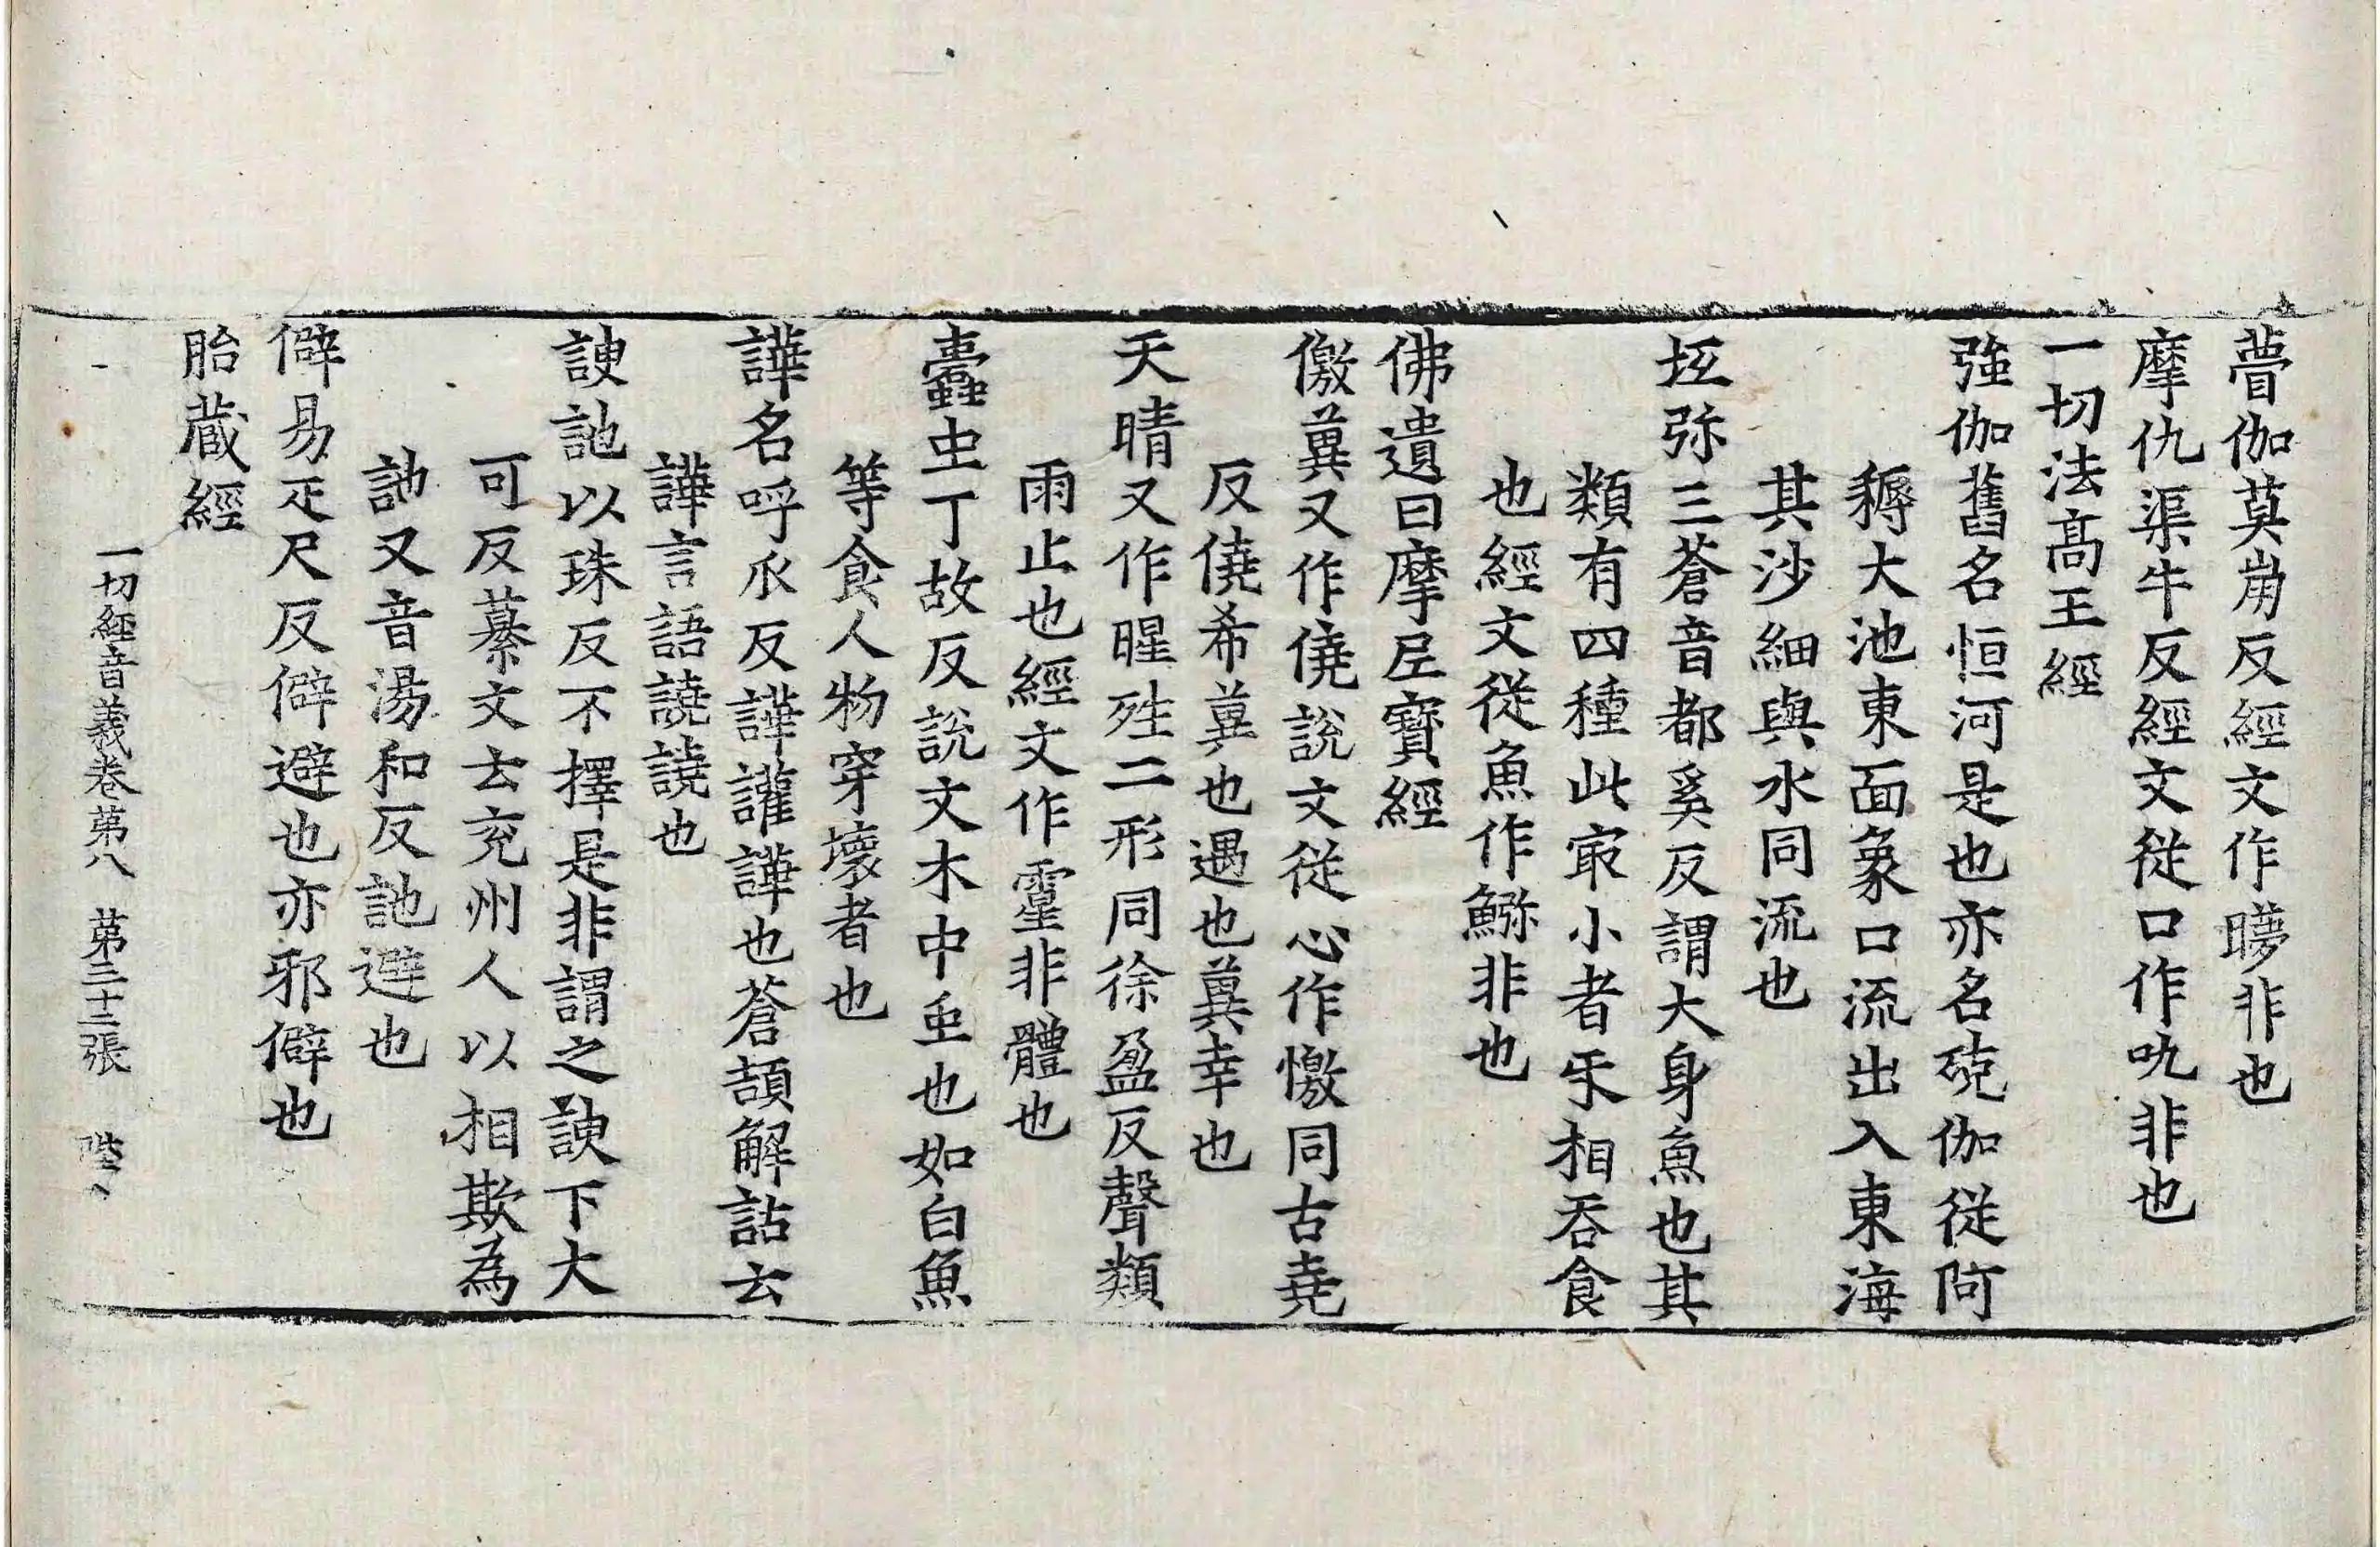 瞢伽莫崩反經文作㬤非也
摩仇渠牛反經文從口作吼非也
一切法髙王經
強伽舊名恒河是也亦名殑伽從阿
耨大池東面象口流出入東海
其沙細與水同流也
坘弥三蒼音都奚反謂大身魚也其
類有四種此㝡小者𠄔相吞食
也經文從魚作鰯非也
佛遺曰摩尼寶經
儌兾又作僥說文從心作憿同古堯
反僥希兾也遇也兾幸也
天晴又作暒殅二形同徐盈反聲類
雨止也經文作霪非體也
蠹虫丁故反說文木中䖝也如白魚
等食人物穿壞者也
譁名呼𠂢反譁讙譁也蒼頡解詁云
譁言語譊譊也
諛訑以珠反不擇是非謂之諛下大
可反纂文云兖州人以相欺為
訑又音湯和反訑避也
僻易疋尺反僻避也亦邪僻也
胎藏經
一切經音義卷苐八 苐二十二張